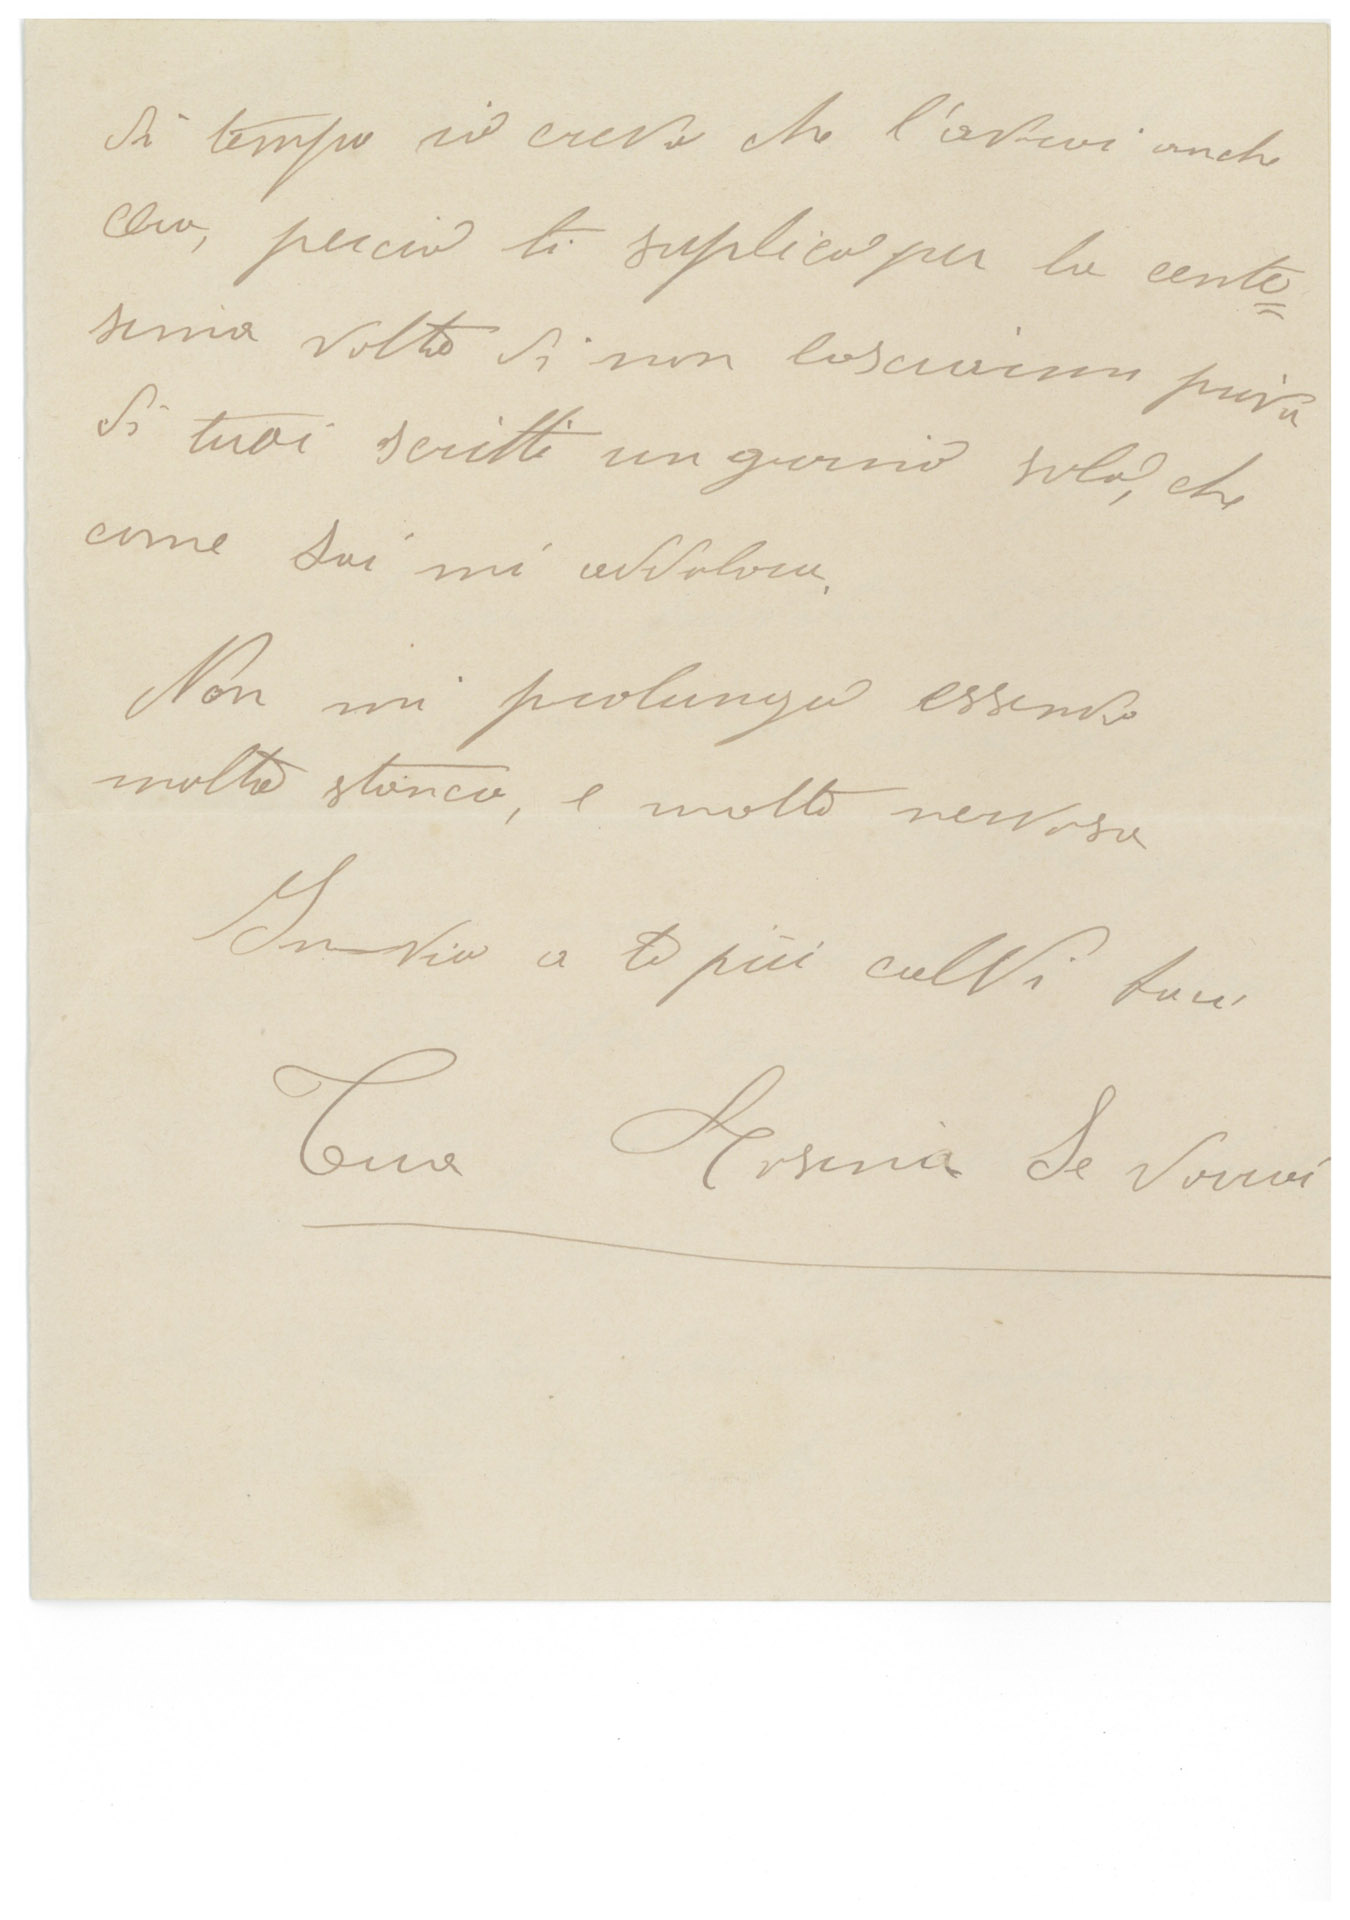 di tempo io credo che l'avevi anche
ora, perciò ti suplico per la cente=
sima volta di non lasciarmi priva
di tuoi scritti un giorno solo, che
come sai mi addolora.
Non mi prolungo essendo
molto stanca, e molto nervosa
Invio a te più caldi baci
Tua